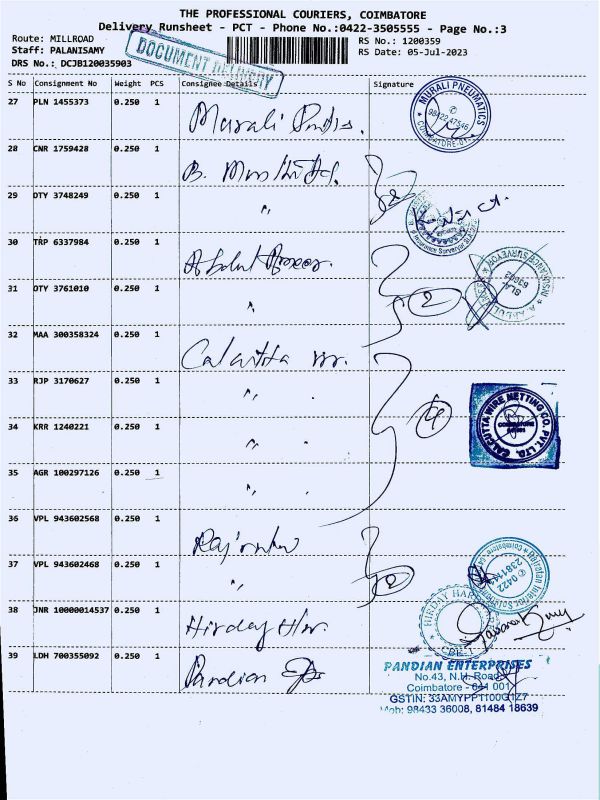 THE PROFESSIONAL COURIERS, COIMBATORE
Delivery Runsheet - PCT - Phone No.:0422-3505555 - Page No.:3
Route: MILLROAD
RS No.: 1200359
Staff: PALANISAMY
RS Date: 05-Jul-2023
DRS No.: DCJB120035903
DOCUMENT DELIVERY
S No Consignment No Weight PCS Consignee Details Signature
27 PLN 1455373 0.250 1 Murali
MURALI PNEUMATICS
98422 47546
28 CNR 1759428 0.250 1 B.
29 DTY 3748249 0.250 1 "
2
30 TRP 6337984 0.250 1 Abdul
31 DTY 3761010 0.250 1 "
2
32 MAA 300358324 0.250 1 Calcutta
33 RJP 3170627 0.250 1 " "
34 KRR 1240221 0.250 1 " "
4
CALCUTTA WIRE NETTING CO. PVT. LTD.
COIMBATORE
35 AGR 100297126 0.250 1 " "
36 VPL 943602568 0.250 1
37 VPL 943602468 0.250 1 "
2
38 JNR 10000014537 0.250 1 Hirday
39 LDH 700355092 0.250 1 Pandian
PANDIAN ENTERPRISES
No.43, N.H. Road
Coimbatore - 641 001
98433 36008, 81484 18639